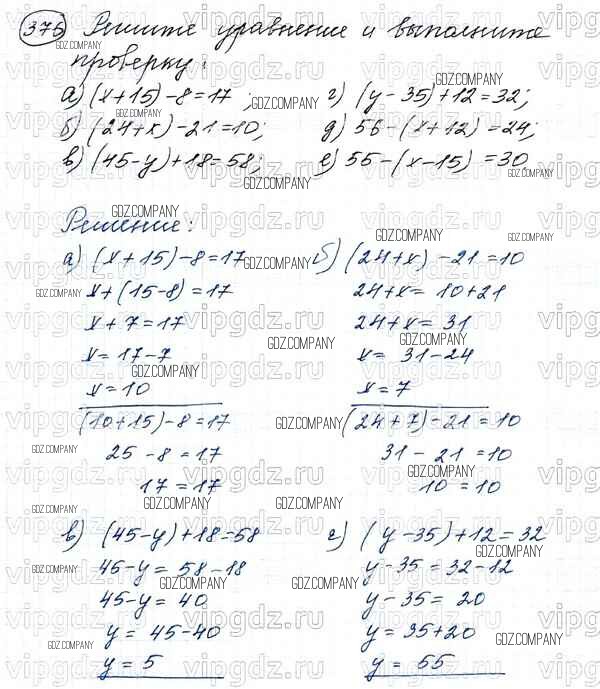 375 Решите уравнение и выполните
проверку:
а) (x+15)-8=17; г) (y-35)+12=32;
б) (24+x)-21=10; д) 56-(x+12)=24;
в) (45-y)+18=58; е) 55-(x-15)=30
Решение:
а) (x+15)-8=17
x+(15-8)=17
x+7=17
x=17-7
x=10
(10+15)-8=17
25-8=17
17=17
б) (24+x)-21=10
24+x=10+21
24+x=31
x=31-24
x=7
(24+7)-21=10
31-21=10
10=10
в) (45-y)+18=58
45-y=58-18
45-y=40
y=45-40
y=5
г) (y-35)+12=32
y-35=32-12
y-35=20
y=35+20
y=55
GDZ.COMPANY
vipgdz.ru